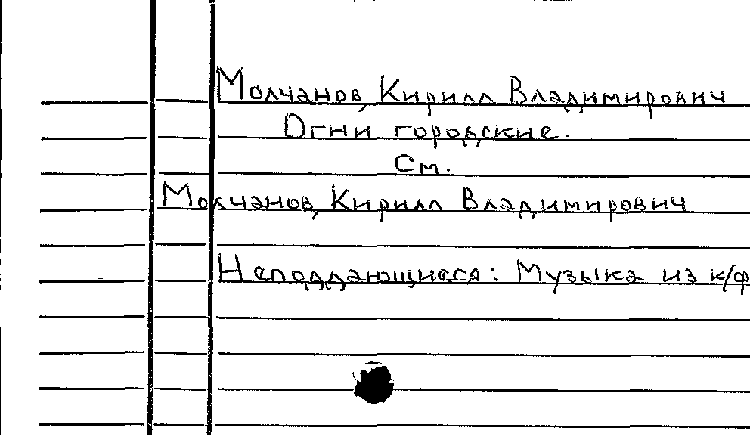 Молчанов, Кирилл Владимирович
Огни городские.
См.
Молчанов, Кирилл Владимирович
Неподдающиеся: Музыка из к/ф